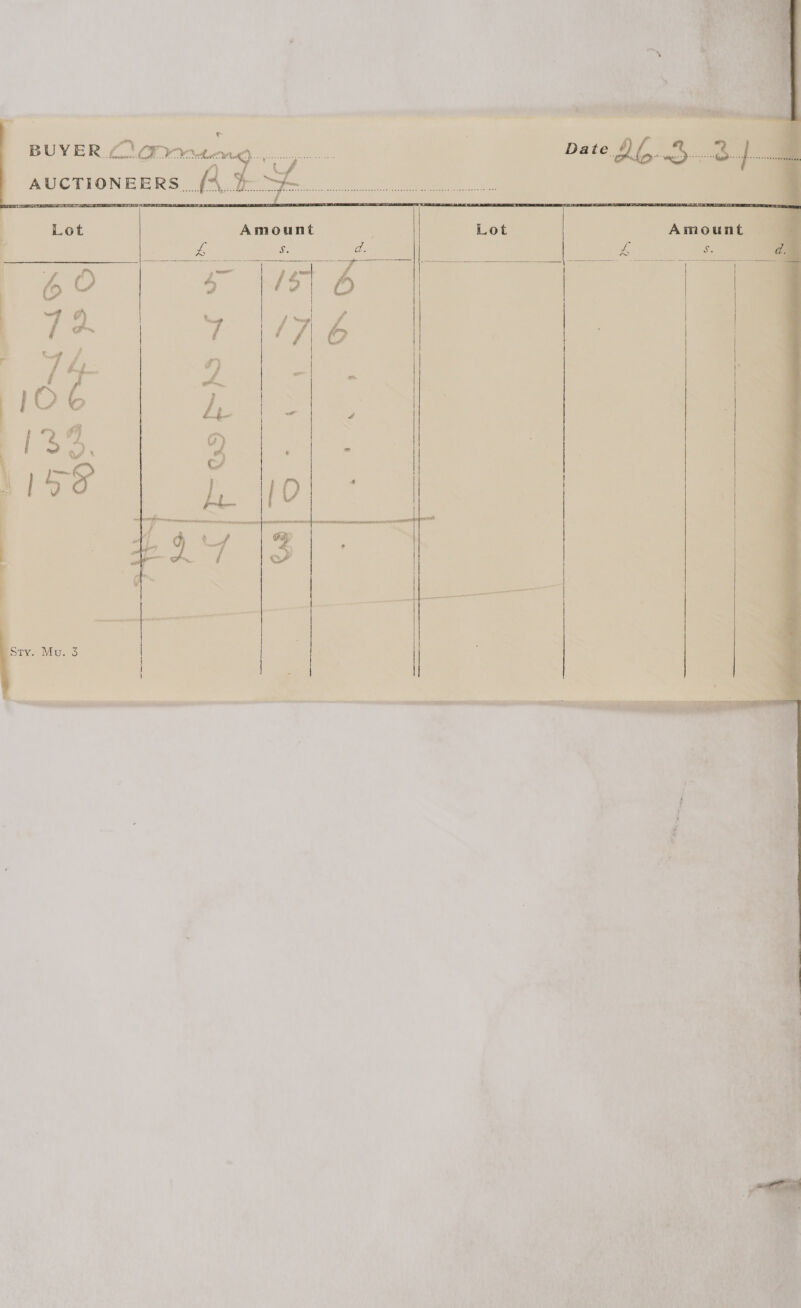 BUYER Date 26. 3. 31
AUCTIONEERS
Lot Amount Lot Amount
£ s. d. £ s. d.
60 5 15 6
72 7 17 6
74 2 - -
106 4 - -
133. 3 . -
158 4 10 -
£27 3 .
Sty. Mu. 3